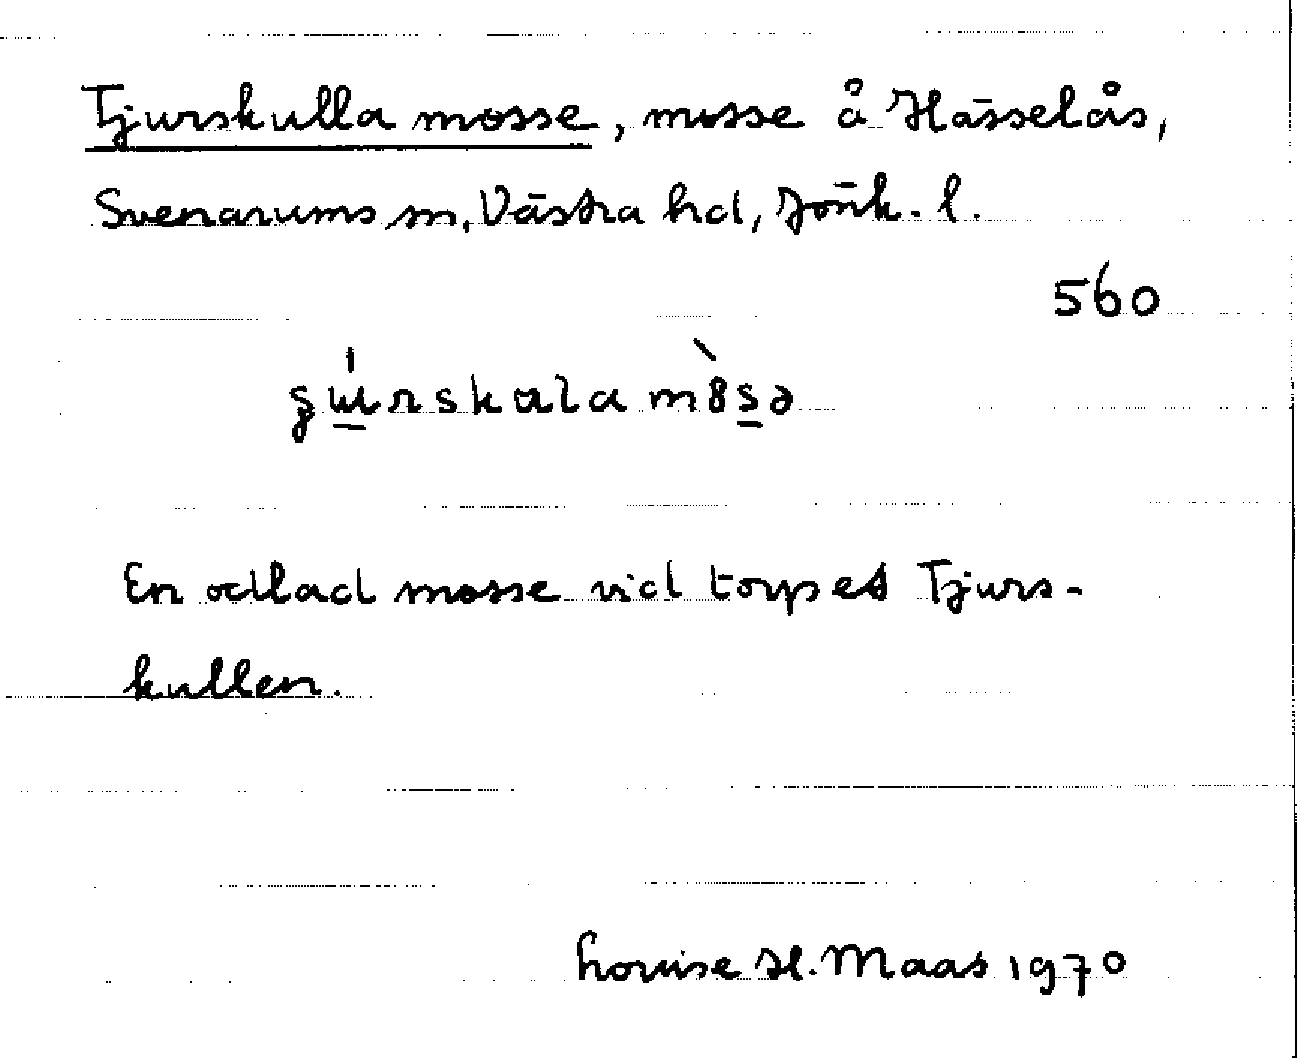 Tjurskulla mosse, mosse å Hässelås,
Svenarums sn, Västra hd, Jönk. l.
560
En odlad mosse vid torpet Tjurs-
kullen.
Louise H. Maas 1970